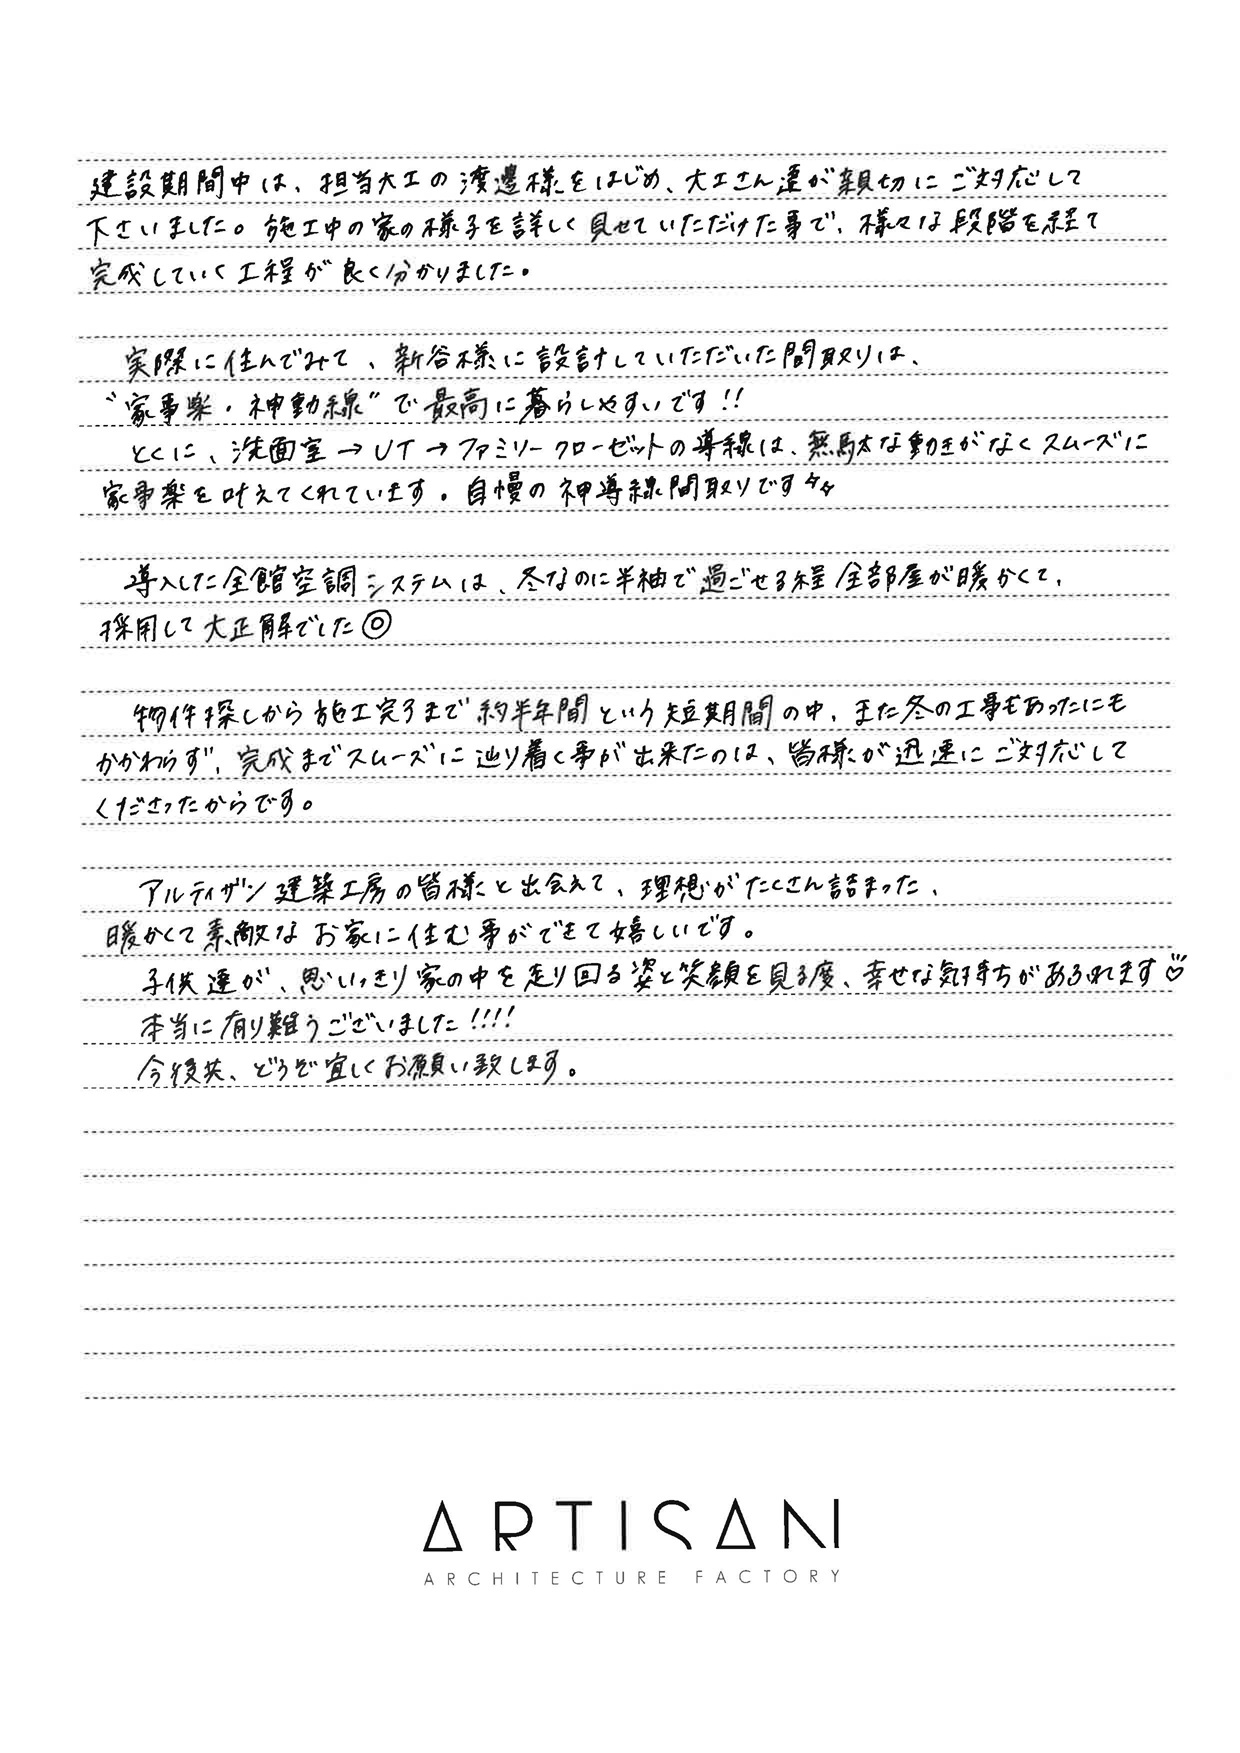 建設期間中は、担当大工の渡邊様をはじめ、大工さん達が親切にご対応して
下さいました。施工中の家の様子を詳しく見せていただけた事で、様々な段階を経て
完成していく工程が良く分かりました。
実際に住んでみて、新谷様に設計していただいた間取りは、
"家事楽・神動線"で最高に暮らしやすいです!!
とくに、洗面室→UT→ファミリークローゼットの導線は、無駄な動きがなくスムーズに
家事楽を叶えてくれています。自慢の神導線間取りです
導入した全館空調システムは、冬なのに半袖で過ごせる程全部屋が暖かくて、
採用して大正解でした◎
物件探しから施工完了まで約半年間という短期間の中、また冬の工事もあったにも
かかわらず、完成までスムーズに辿り着く事が出来たのは、皆様が迅速にご対応して
くださったからです。
アルティザン建築工房の皆様と出会えて、理想がたくさん詰まった、
暖かくて素敵なお家に住む事ができて嬉しいです。
子供達が、思いっきり家の中を走り回る姿と笑顔を見る度、幸せな気持ちがあふれます♡
本当に有り難うございました!!!!
今後共、どうぞ宜しくお願い致します。
ARTISAN
ARCHITECTURE FACTORY